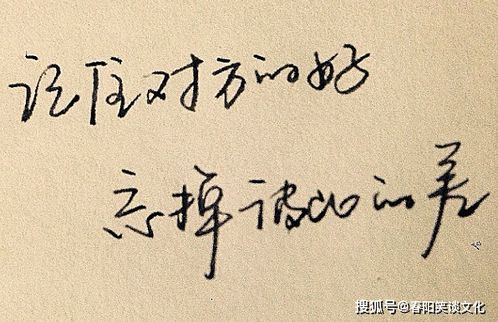 记住对方的好
忘掉彼此的差
搜狐号@春阳笑谈文化